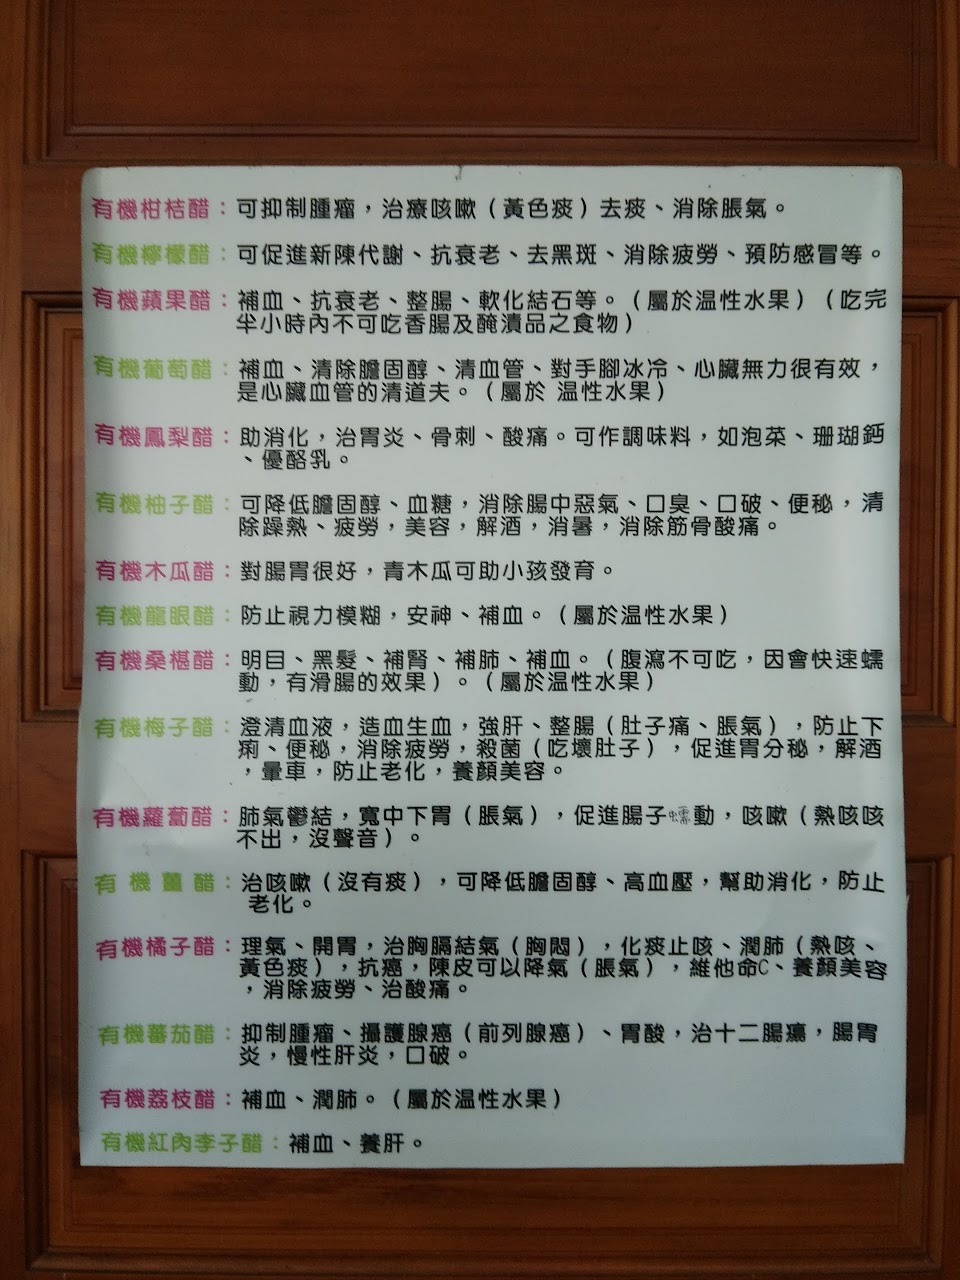 有機柑桔醋：可抑制腫瘤，治療咳嗽（黃色痰）去痰、消除脹氣。
有機檸檬醋：可促進新陳代謝、抗衰老、去黑斑、消除疲勞、預防感冒等。
有機蘋果醋：補血、抗衰老、整腸、軟化結石等。（屬於温性水果）（吃完
半小時內不可吃香腸及醃漬品之食物）
有機葡萄醋：補血、清除膽固醇、清血管、對手腳冰冷、心臟無力很有效，
是心臟血管的清道夫。（屬於 温性水果）
有機鳳梨醋：助消化，治胃炎、骨刺、酸痛。可作調味料，如泡菜、珊瑚鈣
、優酪乳。
有機柚子醋：可降低膽固醇、血糖，消除腸中惡氣、口臭、口破、便秘，清
除躁熱、疲勞，美容，解酒，消暑，消除筋骨酸痛。
有機木瓜醋：對腸胃很好，青木瓜可助小孩發育。
有機龍眼醋：防止視力模糊，安神、補血。（屬於温性水果）
有機桑椹醋：明目、黑髮、補腎、補肺、補血。（腹瀉不可吃，因會快速蠕
動，有滑腸的效果）。（屬於温性水果）
有機梅子醋：澄清血液，造血生血，強肝、整腸（肚子痛、脹氣），防止下
痢、便秘，消除疲勞，殺菌（吃壞肚子），促進胃分秘，解酒
，暈車，防止老化，養顏美容。
有機蘿蔔醋：肺氣鬱結，寬中下胃（脹氣），促進腸子蠕動，咳嗽（熱咳咳
不出，沒聲音）。
有 機 薑 醋：治咳嗽（沒有痰），可降低膽固醇、高血壓，幫助消化，防止
老化。
有機橘子醋：理氣、開胃，治胸膈結氣（胸悶），化痰止咳、潤肺（熱咳、
黃色痰），抗癌，陳皮可以降氣（脹氣），維他命C、養顏美容
，消除疲勞、治酸痛。
有機蕃茄醋：抑制腫瘤、攝護腺癌（前列腺癌）、胃酸，治十二腸瘍，腸胃
炎，慢性肝炎，口破。
有機荔枝醋：補血、潤肺。（屬於温性水果）
有機紅內李子醋：補血、養肝。